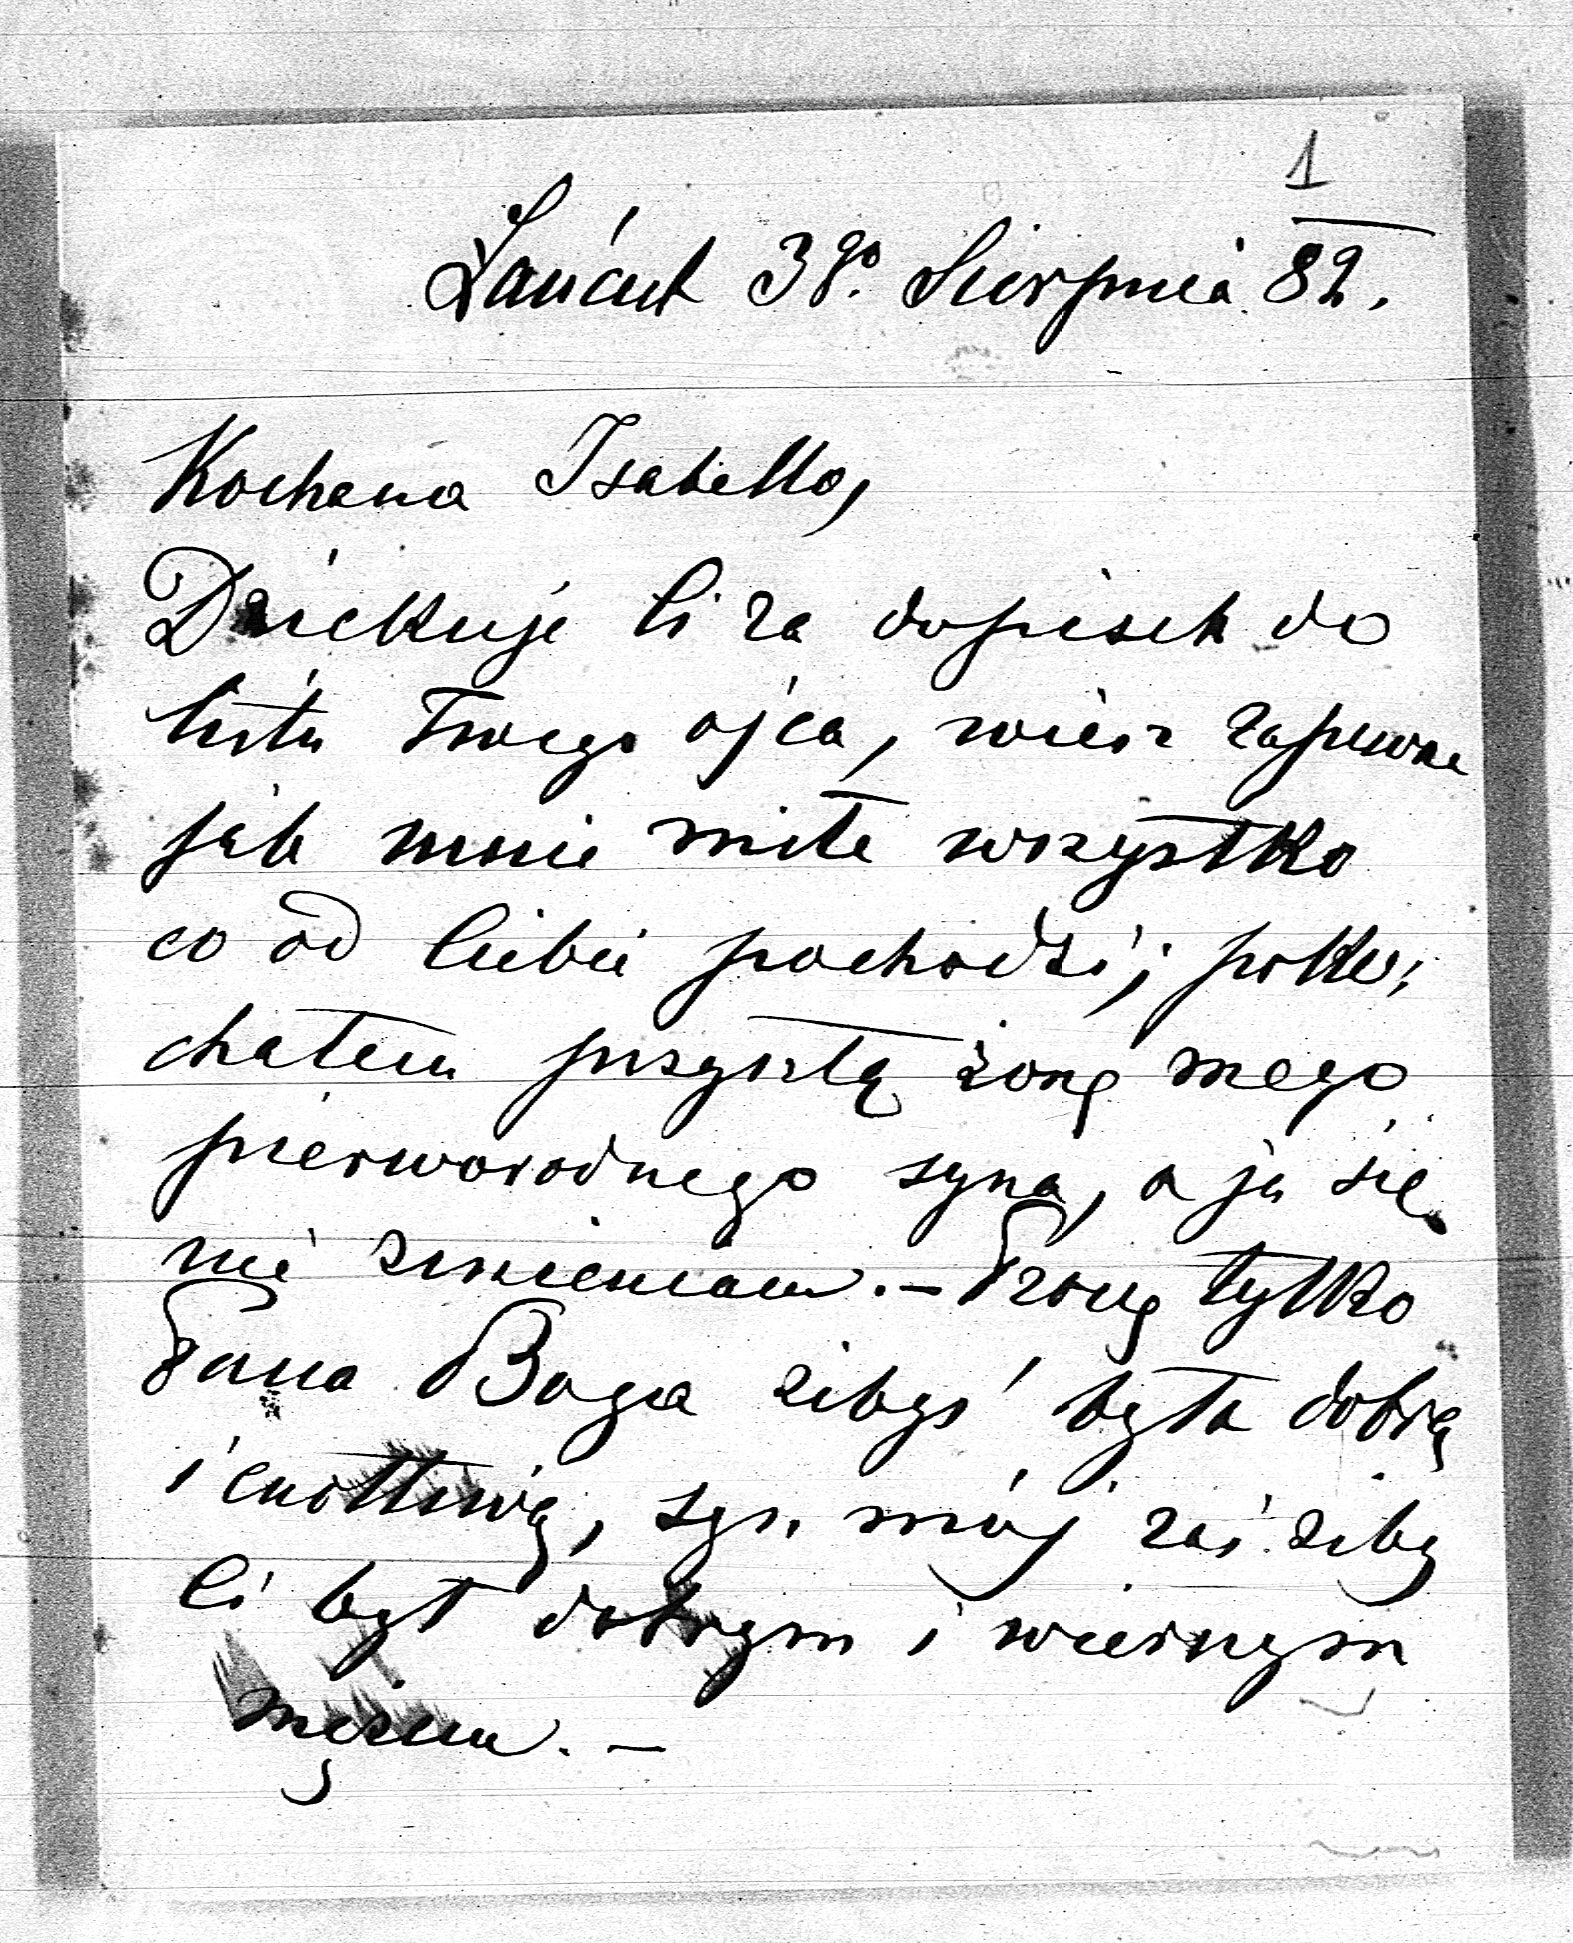 1
Łańcut 3go Sierpnia 82.
Kochana Isabello,
Dziękuję Ci za dopisek do
listu Twego ojca, wiesz zapewne
jak mnie miłe wszystko
co od Ciebie pochodzi; poko,
chałem przyszłą żonę mego
pierworodnego syna, a ja się
nie zmieniam. — Proszę tylko
Pana Boga żebyś była dobrą
i cnotliwą, syn mój zaś żeby
Ci był dobrym i wiernym
mężem. —